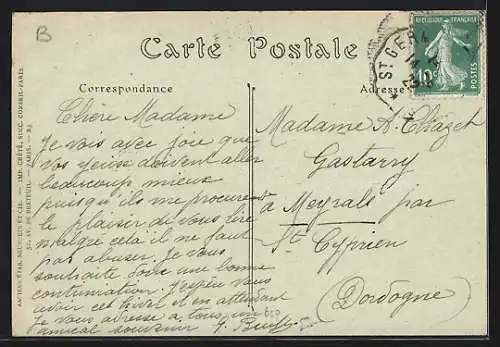 B
Carte Postale
Correspondance
Adresse
REPUBLIQUE FRANÇAISE
10c
POSTES
ST GERA
Chère Madame
Je vois avec joie que
vos yeux doivent aller
beaucoup mieux
puisqu'ils me procurent
le plaisir de vous lire
malgré cela il ne faut
pas abuser. Je vous
souhaite donc une bonne
continuation. J'espère vous
voir cet hiver et en attendant
Je vous adresse à tous un
amical souvenir
Madame A. Chazet
Gastarry
à Meyrals par
St Cyprien
(Dordogne)
ANCIENS ÉTAB. NEURDEIN ET CIE. — IMP. CRÉTÉ, SUCC. CORBEIL-PARIS
52, AV. DE BRETEUIL. — PARIS.